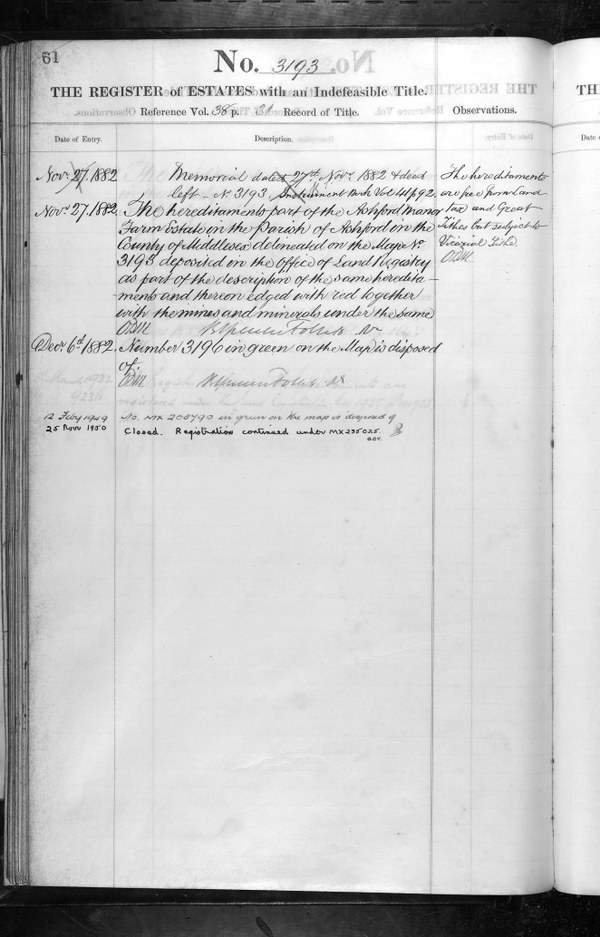 61
No. 3193
THE REGISTER of ESTATES with an Indefeasible Title.
Reference Vol. 38 p. 31 Record of Title.
Observations.
Date of Entry.
Description.
Novr. 27. 1882
Memorial dated 27th Novr. 1882 & deed
left - No. 3193 Instrument Book Vol 41 p 92
Novr. 27. 1882.
The hereditaments part of the Ashford Manor
Farm Estate in the Parish of Ashford in the
County of Middlesex delineated on the Map No.
3193 deposited in the Office of Land Registry
as part of the description of the same heredita-
ments and thereon edged with red together
with the mines and minerals under the same
The hereditaments
are free from Land
tax and Great
Tithes but subject to
Vicarial Tithe
Decr. 6th 1882.
Number 3196 in green on the Map is disposed
of.
12 Feby 1949
No. MX 205790 in green on the map is disposed of
25 Nov 1950
Closed. Registration continued under MX 235025.
TH
Date o